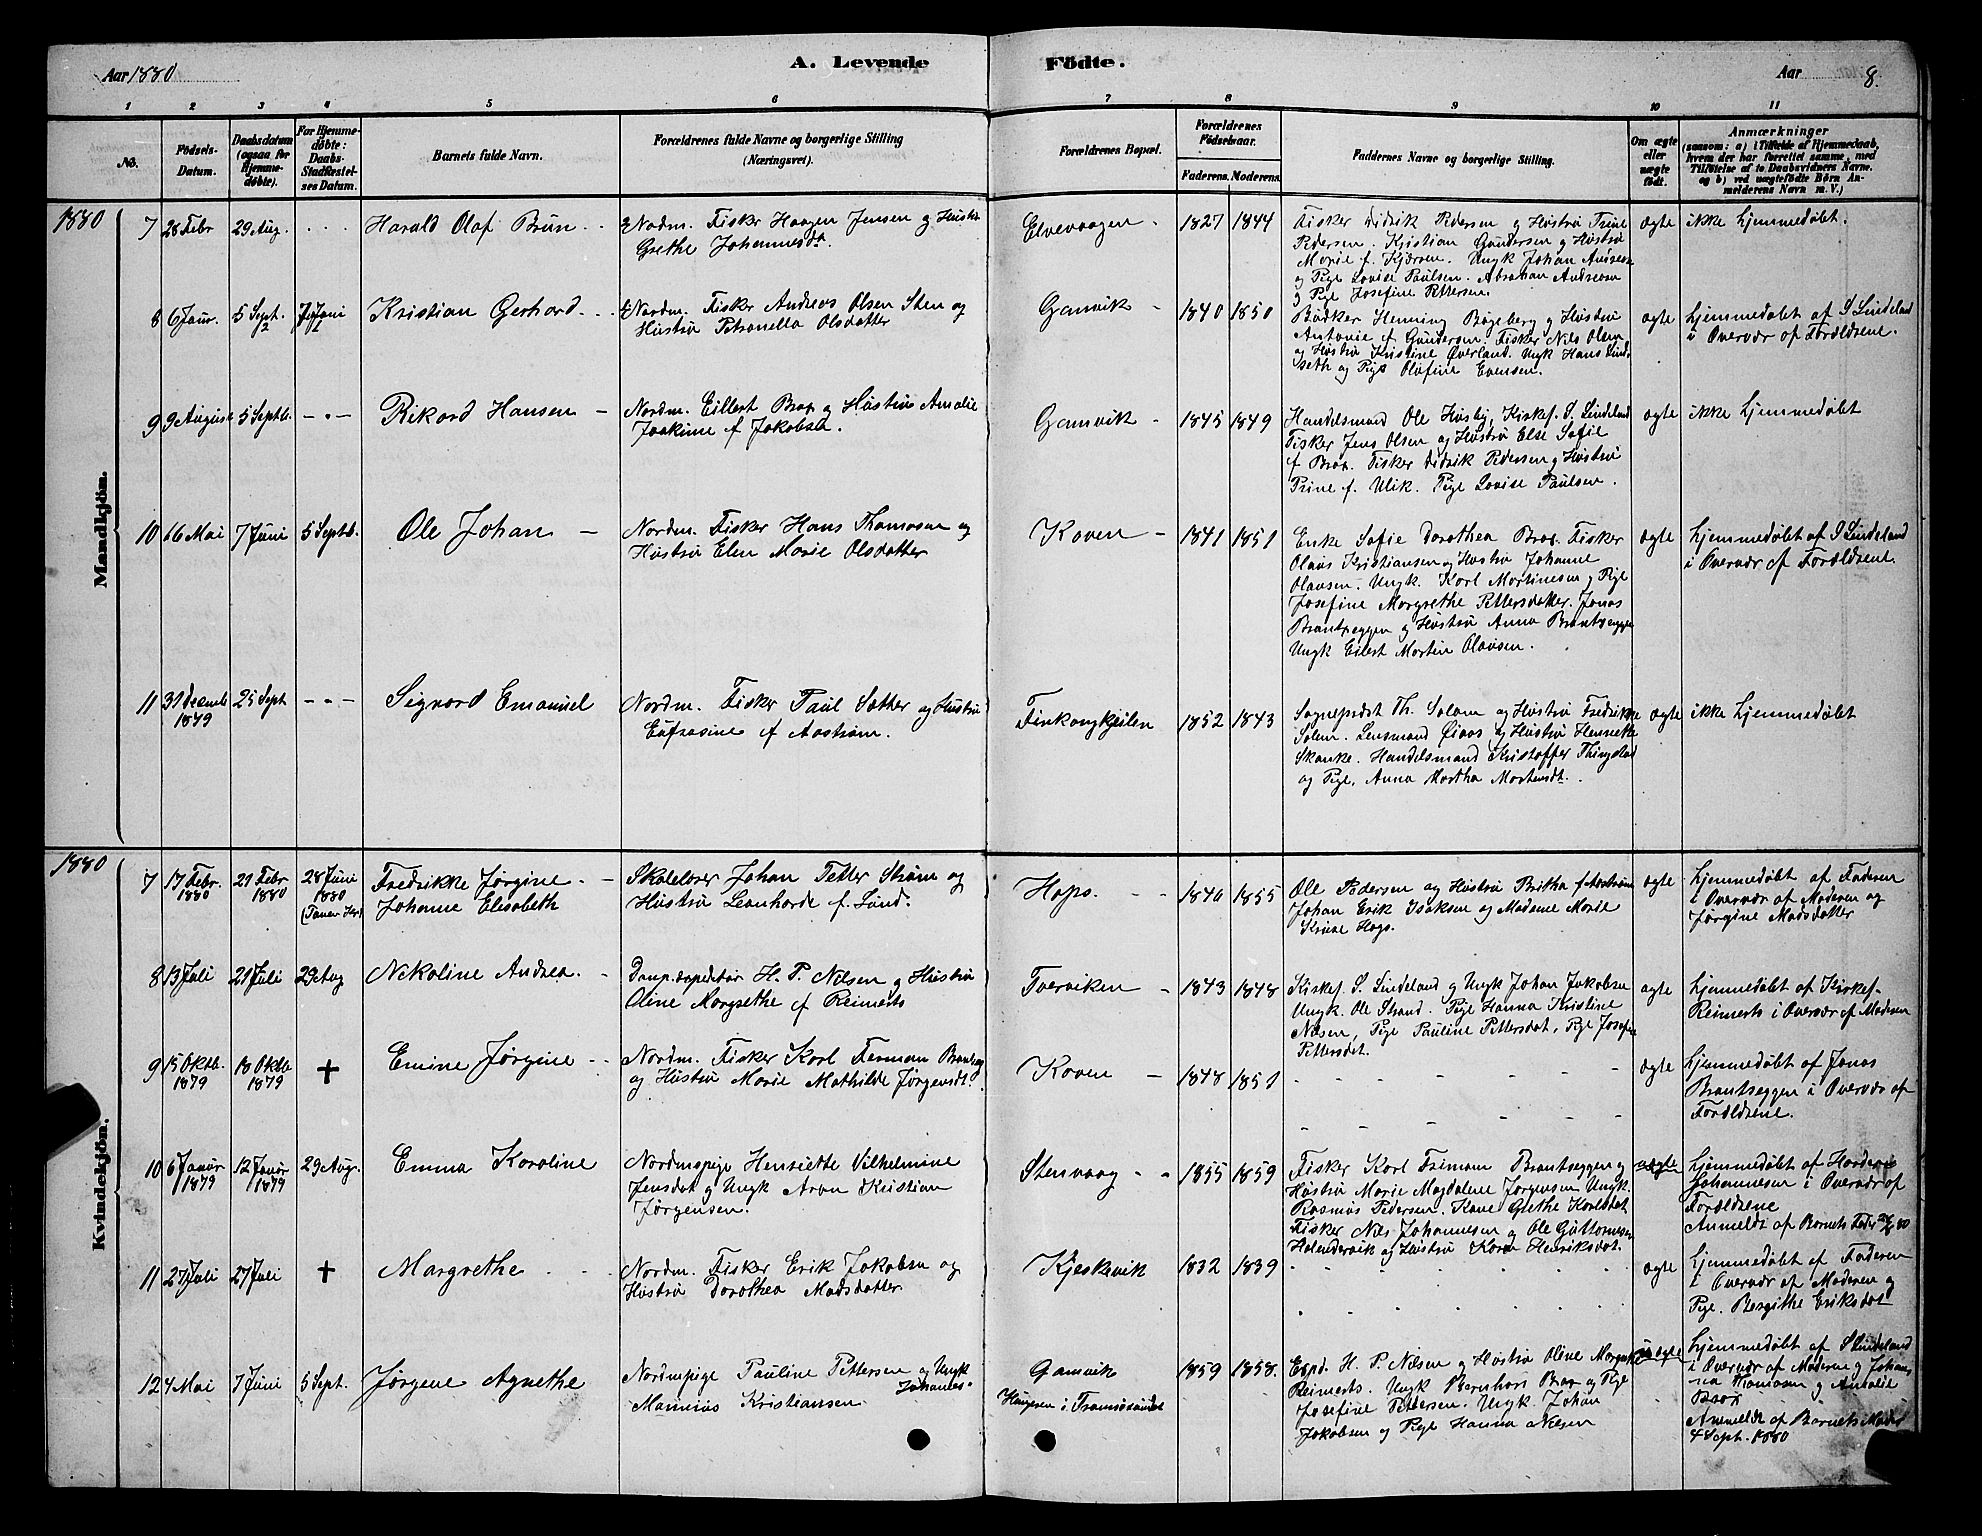 Aar 1880
A. Levende Födte.
Aar 8.
1 2 3 4 5 6 7 8 9 10 11
No.
Födsels-
Datum.
Daabsdatum
(ogsaa for
Hjemme-
döbte).
For Hjemme-
döbte:
Daabs-
Stadfæstel-
ses Datum.
Barnets fulde Navn.
Forældrenes fulde Navne og borgerlige Stilling
(Næringsvei).
Forældrenes Bopæl.
Forældrenes
Födselsaar.
Faderens. Moderens.
Faddernes Navne og borgerlige Stilling.
Om ægte
eller
uægte
födt.
Anmærkninger
(saasom: a) i Tilfælde af Hjemmedaab,
hvem der har forrettet samme, med
Tilföielse af to Daabsvidners Navne.
og b) ved uægtefödte Börn An-
melderens Navn m. V.)
Mandkjön.
1880
7 28 Febr 29 Aug. Harald Olaf Brun
Nordm. Fisker Haagen Jensen og Hustru
Grethe Johannesdr.
Elvevaagen 1827 1844
Fisker Didrik Pedersen og Hustru Trine
Pedersen. Kristian Gundersen og Hustru
Marie f. Kjærven. Ungk Johan Andresen
og Pige Lovise Paulsen. Abraham Andresen
og Pige Josefine Pettersen.
ægte ikke hjemmedøbt.
8 6 Jaur. 5 Sept. 7 Juni Kristian Gerhard
Nordm. Fisker Andreas Olsen Sten og
Hustru Petronella Olsdatter
Gamvik 1840 1850
Bødker Henning Bøgeberg og Hustru
Antonie f Gundersen. Fisker Nils Olsen
og Hustru Kristine Øverland. Ungk Hans Lind-
seth og Pige Olufine Evensen.
ægte hjemmedøbt af S Lindeland
i Overvær af Forældrene.
9 9 August 5 Septb. Rikard Hansen
Nordm. Eillert Brox og Hustru Amalie
Joakime f Jakobsen.
Gamvik 1845 1849
Handelsmand Ole Husby, Kirkes. S. Lindeland
Fisker Jens Olsen og Hustru Else Sofie
f Brox. Fisker Didrik Pedersen og Hustru
Trine f. Ulik. Pige Lovise Paulsen.
ægte ikke hjemmedøbt
10 16 Mai 7 Juni 5 Septb. Ole Johan
Nordm. Fisker Hans Thomasen og
Hustru Elen Marie Olsdatter
Koven 1841 1851
Enke Sofie Dorothea Brox. Fisker
Olaus Kristiansen og Hustru Johanne
Olausen. Ungk. Karl Martinesen og Pige
Josefine Margrethe Pettersdatter. Jonas
Brantseggen og Hustru Anna Brantseggen
Ungk Eilert Martin Olausen.
ægte hjemmedøbt af S Lindeland
i Overvær af Forældrene.
11 31 Decemb 1879 25 Sept Sigvard Emanuel
Nordm. Fisker Paul Sæther og Hustru
Eufrosine f Aastrøm.
Finkongkjeilen 1852 1843
Sognepræst Th. Solem og Hustru Fredrikke
Solem. Lensmand Øiaas og Hustru Henriette
Skanke. Handelsmand Kristoffer Thingstad
og Pige. Anna Martha Mortensdt.
ægte ikke hjemmedøbt
Kvindekjön.
1880
7 17 Febr. 1880 21 Febr 1880 28 Juni 1880 Fredrikke Jørgine
Johanne Elisabeth
Skolelærer Johan Petter Strøm og
Hustru Leonharde f. Lund.
Hops. 1840 1855
Ole Pedersen og Hustru Britha f Aastrøm
Johan Erik Isaksen og Madame Marie
Kruse Hops.
ægte hjemmedøbt af Faderen
i Overvær af Moderen og
Jørgine Madsdatter
8 13 Juli 21 Juli 29 Aug Nikoline Andrea
Dampexpeditør H. P. Nilsen og Hustru
Oline Margrethe f Reimerts
Tverviken 1843 1848
Kirkes. S. Lindeland og Ungk Johan Jakobsen
Ungk. Ole Strand. Pige Hanna Kristine
Nilsen, Pige Pauline Pettersdat. Pige Josefine
Pettersdat.
ægte hjemmedøbt af Kirkes.
Reimerts i Overvær af Moderen
9 15 Oktb. 1879 18 Oktb 1879 + Emine Jørgine
Nordm. Fisker Karl Ferman Brantsegg
og Hustru Marie Mathilde Jørgensdt.
Koven 1848 1851
ægte hjemmedøbt af Jonas
Brantseggen i Overvær af
Forældrene.
10 6 Januar 1879 12 Januar 1879 29 Aug. Emma Karoline
Nordmspige Henriette Vilhelmine
Jensdat og Ungk Aron Kristian
Jørgensen.
Stensvaag 1855 1859
Fisker Karl Freman Brantseggen og
Hustru Marie Magdalene Jørgensen Ungk.
Rasmus Pedersen. Kone Grethe Karlsdat
Fisker Nils Johannesen og Ole Guttormsen
Holendervik og Hustru Karen Henriksdat.
uægte hjemmedøbt af
Johannesen i Overvær af
Forældrene
Anmeldt af Barnets Fader
11 27 Juli 27 Juli + Margrethe
Nordm. Fisker Erik Jakobsen og
Hustru Dorothea Madsdatter
Kjeskevik 1832 1839
ægte hjemmedøbt af Faderen
i Overvær af Moderen og
Pige. Bergithe Eriksdat
12 4 Mai 7 Juni 5 Sept. Jørgene Agnethe
Nordmspige Pauline Pettersen og Ungk
Mannus Kristiansen Johannes
Gamvik 1859 1858.
i Tromsøsundet
Expd. H. P. Nilsen og Hustru Oline Margrete
Reimerts. Ungk Bernhart Brox og Pige
Josefine Pettersen. Ungk. Johan
Jakobsen og Pige Hanna Nilsen
uægte hjemmedøbt af S Lindeland
i Overvær af Moderen og Johan-
na Thomasen og Amalie
Brox
Anmeldt af Barnets Moder
4 Sept. 1880